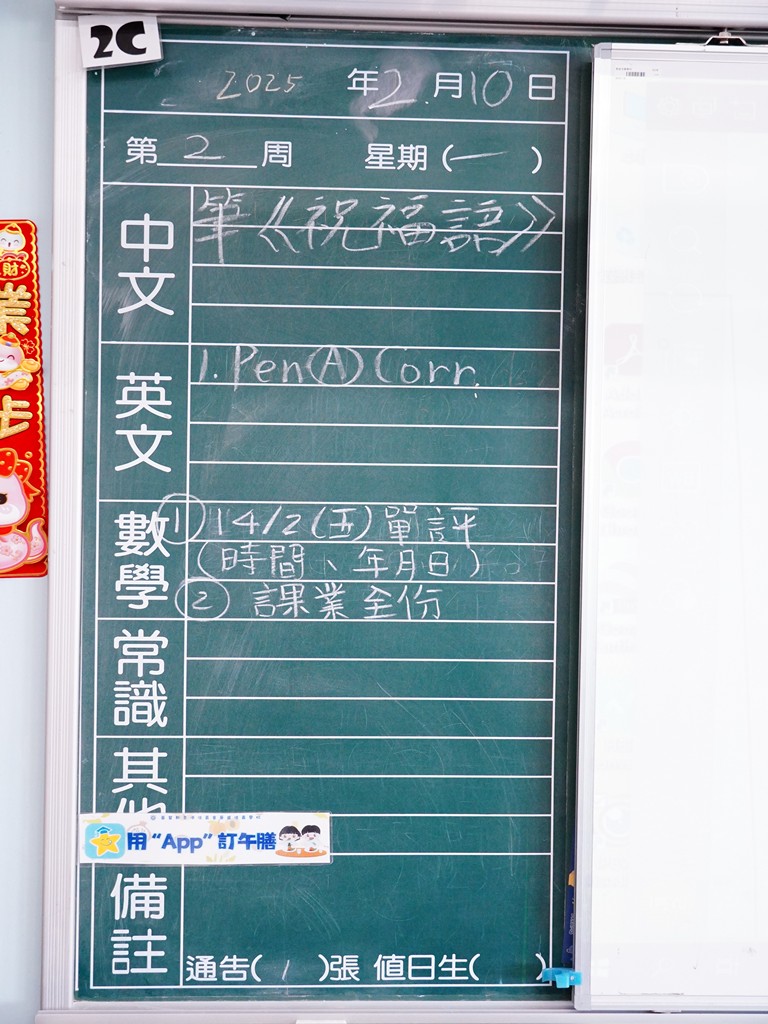 2C
2025 年 2 月 10 日
第 2 周 星期 (一)
中文
筆《祝福語》
英文
1. Pen(A) Corr.
數學
① 14/2(五) 單評
(時間、年月日)
② 課業全份
常識
其他
用“App”訂午膳
備註
通告( 1 )張 值日生( )
財